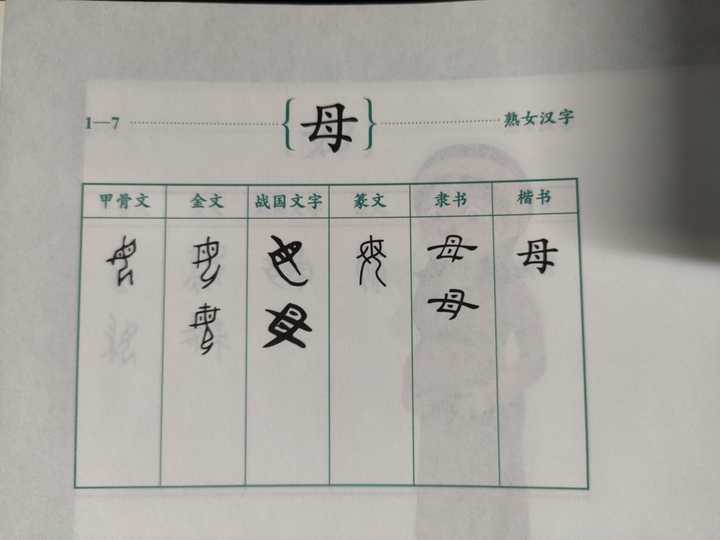 1—7 {母} 熟女汉字
甲骨文 金文 战国文字 篆文 隶书 楷书
母 母 母 母 母 母
母 母 母